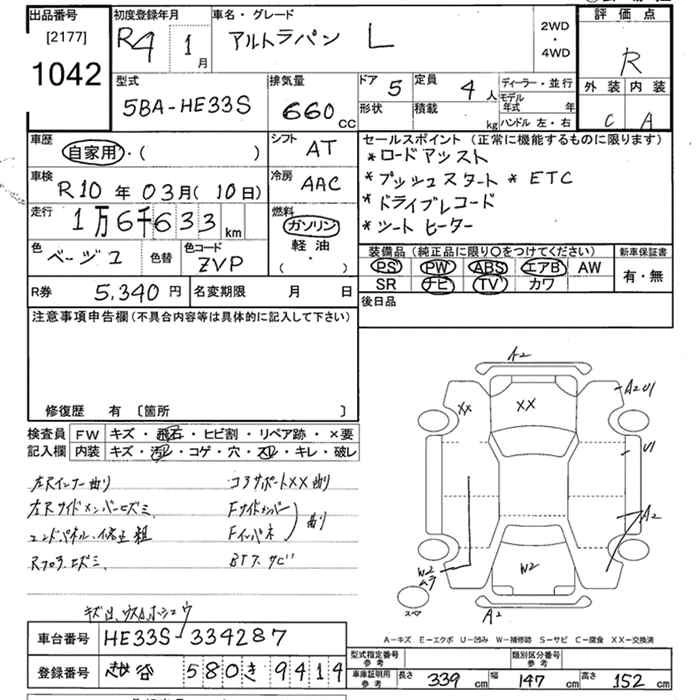 出品番号 初度登録年月 車名・グレード 2WD・4WD 評価点
[2177]
1042
R4 1月 アルトラパン L R
型式 排気量 ドア 5 定員 4人 ディーラー・並行 外装 内装
5BA-HE33S 660cc 形状 積載 kg モデル年式 年 C A
ハンドル 左・右
車歴 自家用・( ) シフト AT
セールスポイント (正常に機能するものに限ります)
*ロードアシスト
*プッシュスタート *ETC
*ドライブレコード
*シートヒーター
車検 R10年03月(10日) 冷房 AAC
走行 1万6千633km 燃料 ガソリン 軽油・( )
色 ベージュ 色替 色コード ZVP
装備品 (純正品に限り○をつけてください) 新車保証書
PS PW ABS エアB AW 有・無
SR ナビ TV カワ
R券 5,340円 名変期限 月 日 後日品
注意事項申告欄(不具合内容等は具体的に記入して下さい)
修復歴 有 〔箇所 〕
検査員 FW キズ・飛石・ヒビ割・リペア跡・×要
記入欄 内装 キズ・汚レ・コゲ・穴・スレ・キレ・破レ
左Rインナー曲り コアサポートXX曲り
左Rサイドメンバーヒズミ Fサイドメンバー
エンドパネル 修正 粗 Fインパネ 曲り
Rフロアヒズミ BTフ サビ
A2
XX XX A2 U1
U1
A2
W2 ムラ W2
スペア A2
A-キズ E-エクボ U-凹み W-補修跡 S-サビ C-腐食 XX-交換済
車台番号 HE33S-334287
登録番号 越谷 580 き 9414
型式指定番号 参考 類別区分番号 参考
車庫証明用 参考 長さ 339cm 幅 147cm 高さ 152cm